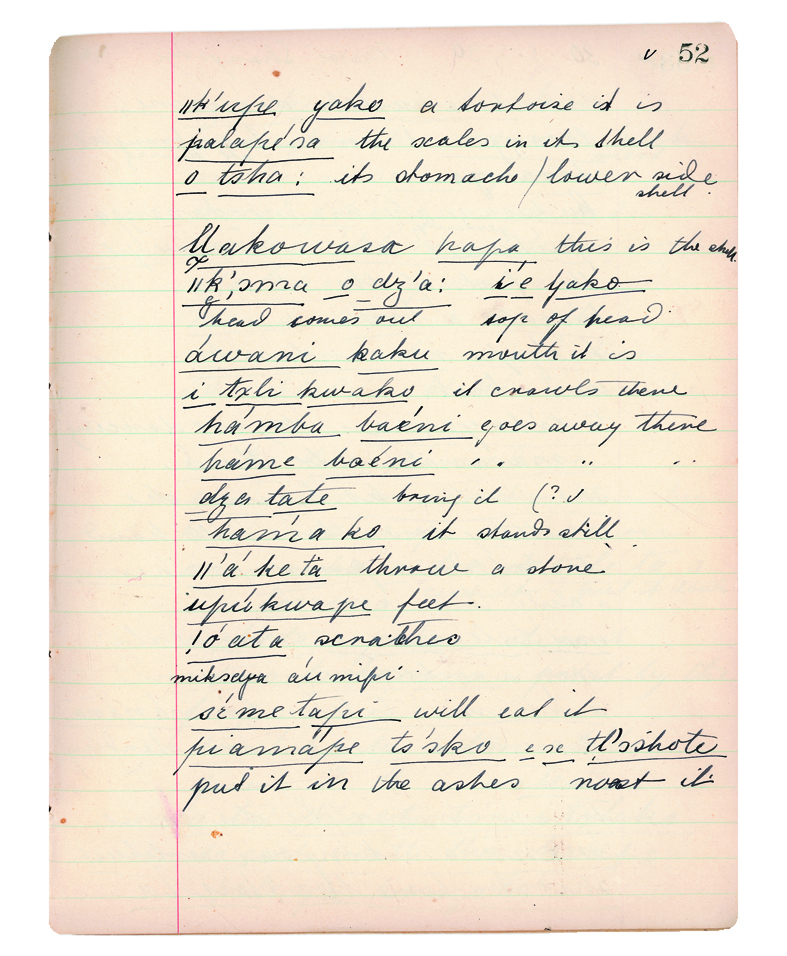 v 52
ǁk'upe yako a tortoise it is
palapésa the scales in its shell
o tsha: its stomache / lower side
shell.
ǁakowasa hapa this is the shell.
ǁk'ɔma o dz'a: i'e yako
head comes out top of head
áwani kaku mouth it is
i txli kwako it crawls there
hámba baéni goes away there
háme baéni " " "
dza tate bring it (? v
hamá ko it stands still
ǁ'á ke ta throw a stone
upi kwape feet.
!ó ata scratches
miksdya áumipi
séme tapi will eat it
piamápe ts'sko
put it in the ashes roast it